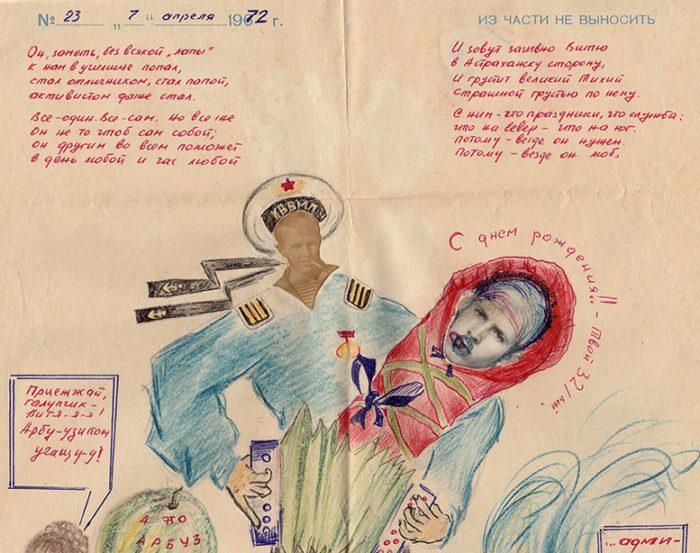 № 23 „ 7 “ апреля 1972 г.
ИЗ ЧАСТИ НЕ ВЫНОСИТЬ
Он, заметь, без всякой „лапы“
к нам в училище попал,
стал отличником, стал папой,
активистом даже стал.
Все-один. Все-сам. Но все же
Он не то чтоб сам собой;
он другим во всем поможет
в день любой и час любой
И зовут заглавно Витю
в Астраханску сторону,
И грустит великий Тихий
страшной грустью по нему.
С ним-что праздники, что служба:
что на север-что на юг.
Потому-везде он нужен.
Потому-везде он люб,
КВВМПУ
С днем рождения!! - Твой 32/
Приежжай,
голупчик-
Витя-я-я!
Арбу-узиком
угащу-у!
А ЭТО
АРБУЗ
...адми-